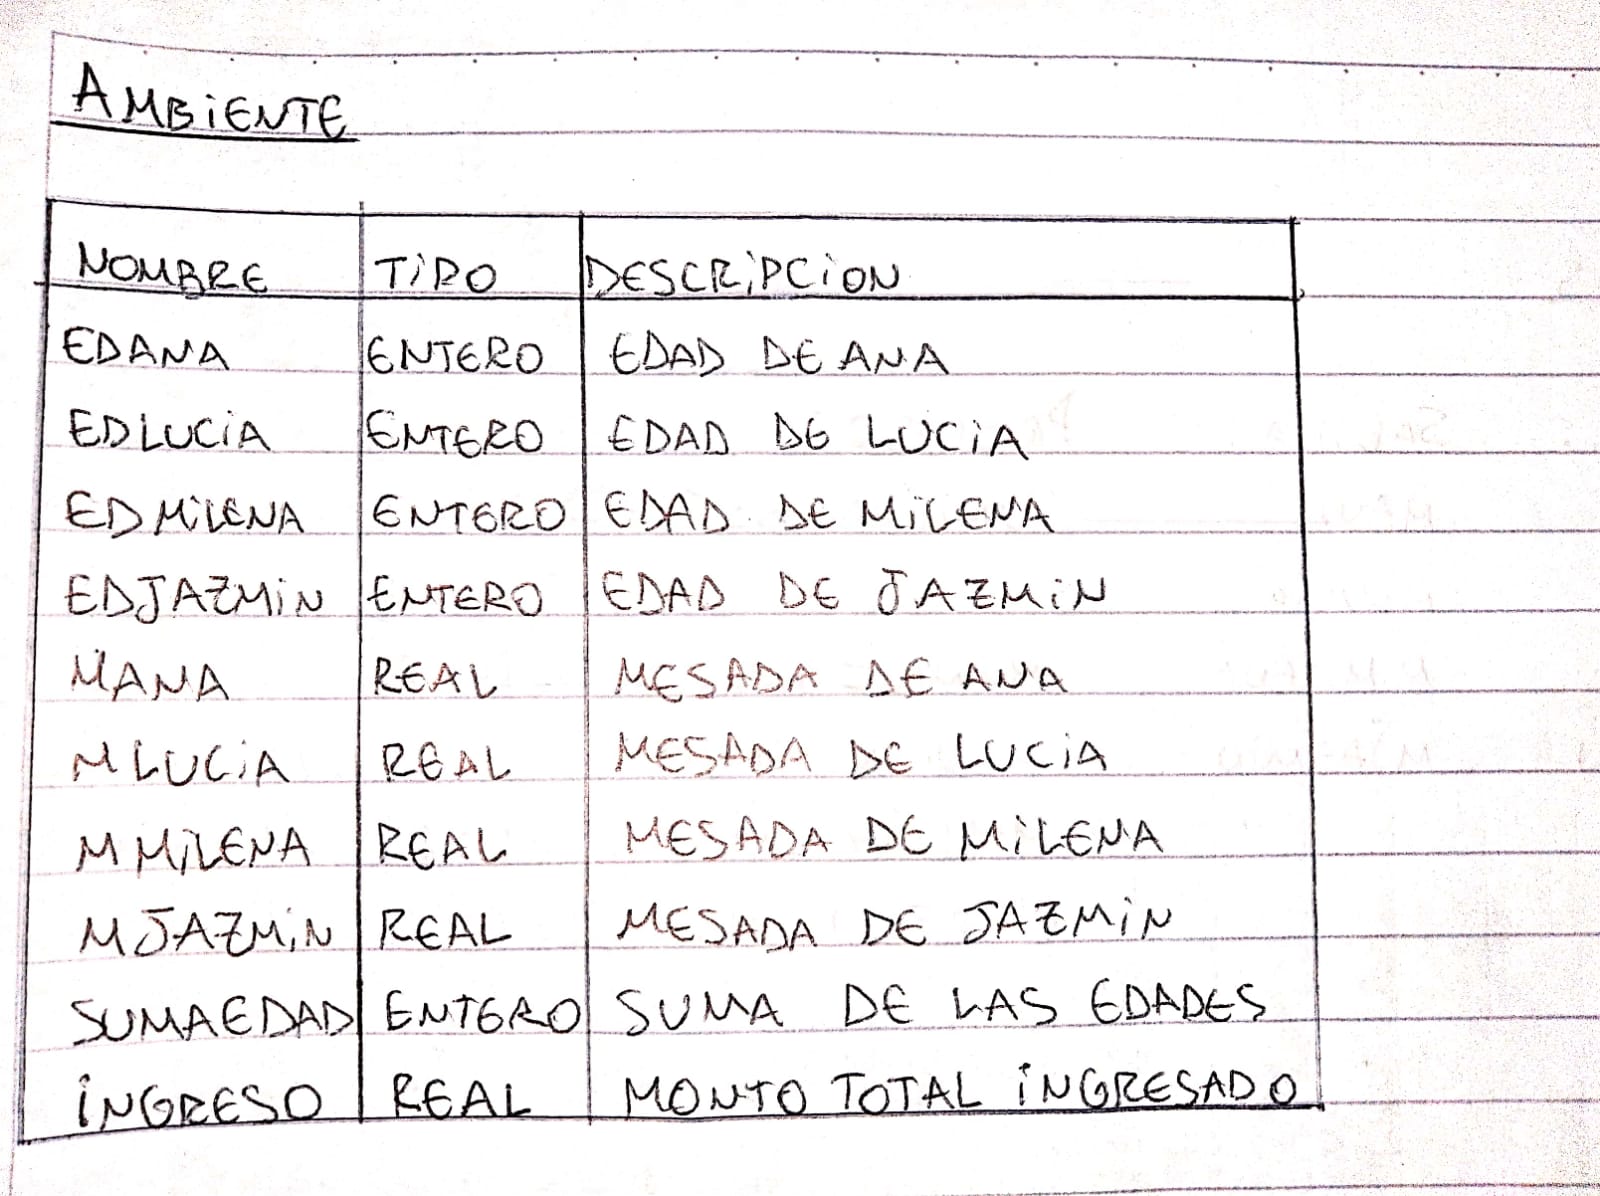 AMBiENTE
NOMBRE TiPO DESCRiPCiON
EDANA ENTERO EDAD DE ANA
EDLUCiA ENTERO EDAD DE LUCiA
EDMiLENA ENTERO EDAD DE MiLENA
EDJAZMiN ENTERO EDAD DE JAZMiN
MANA REAL MESADA DE ANA
MLUCiA REAL MESADA DE LUCiA
MMiLENA REAL MESADA DE MiLENA
MJAZMiN REAL MESADA DE JAZMiN
SUMAEDAD ENTERO SUMA DE LAS EDADES
iNGRESO REAL MONTO TOTAL iNGRESADO